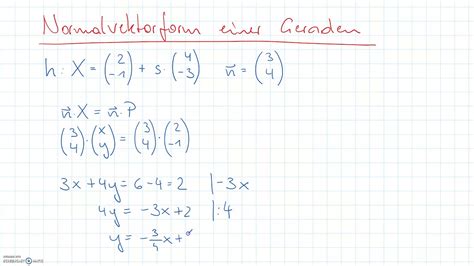 Normalvektorform einer Geraden
h: X = (2 -1) + s · (4 -3) n⃗ = (3 4)
n⃗ · X = n⃗ · P
(3 4) · (x y) = (3 4) · (2 -1)
3x + 4y = 6 - 4 = 2 | -3x
4y = -3x + 2 | : 4
y = -3/4 x +